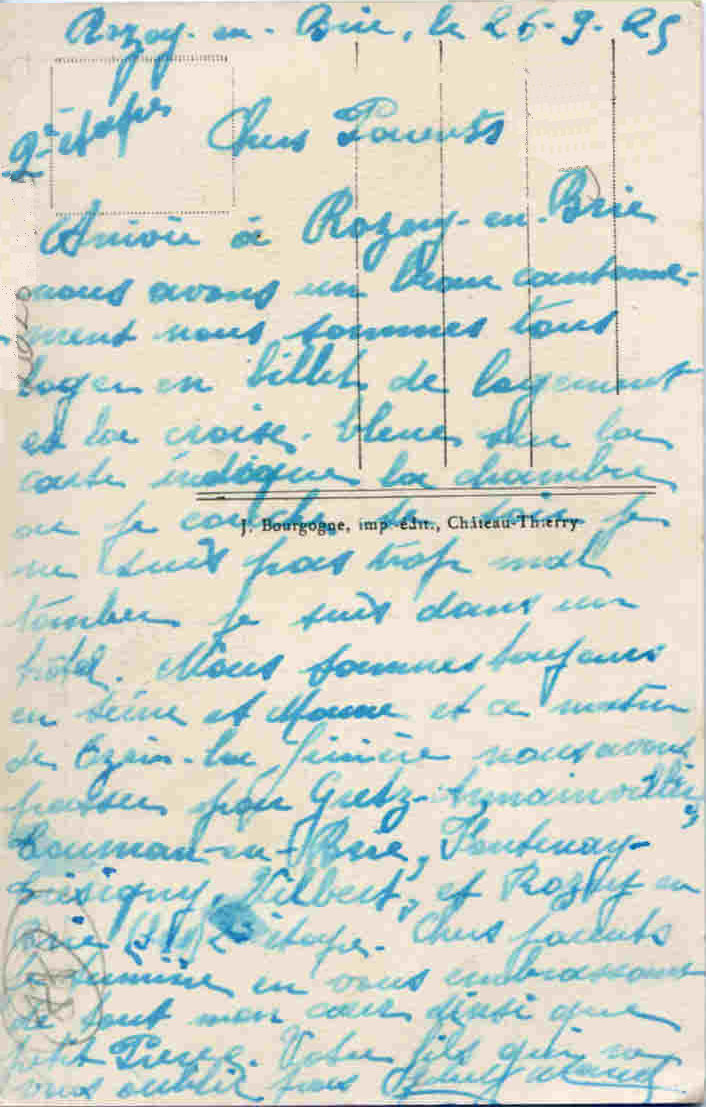 Rozoy-en-Brie, le 26-9-25
2e étape
Chers Parents
Arrivée à Rozoy-en-Brie
nous avons un beau cantonne-
ment nous sommes tous
loger en billet de logement
et la croise bleue sur la
carte indique la chambre
ou je couche ce soir je
ne suis pas trop mal
tomber je suis dans un
hotel. Nous sommes toujours
en Seine et Marne et ce matin
de Ozoir-la-Ferrière nous avons
passer par Gretz-Armainvilliers,
Tournan-en-Brie, Fontenay-
Trésigny, Vilbert, et Rozoy en
Brie 2e étape. Chers parents
je termine en vous embrassant
de tout mon cœur ainsi que
petit Pierre. Votre fils qui ne
vous oublie pas
J. Bourgogne, imp.-édit., Château-Thierry